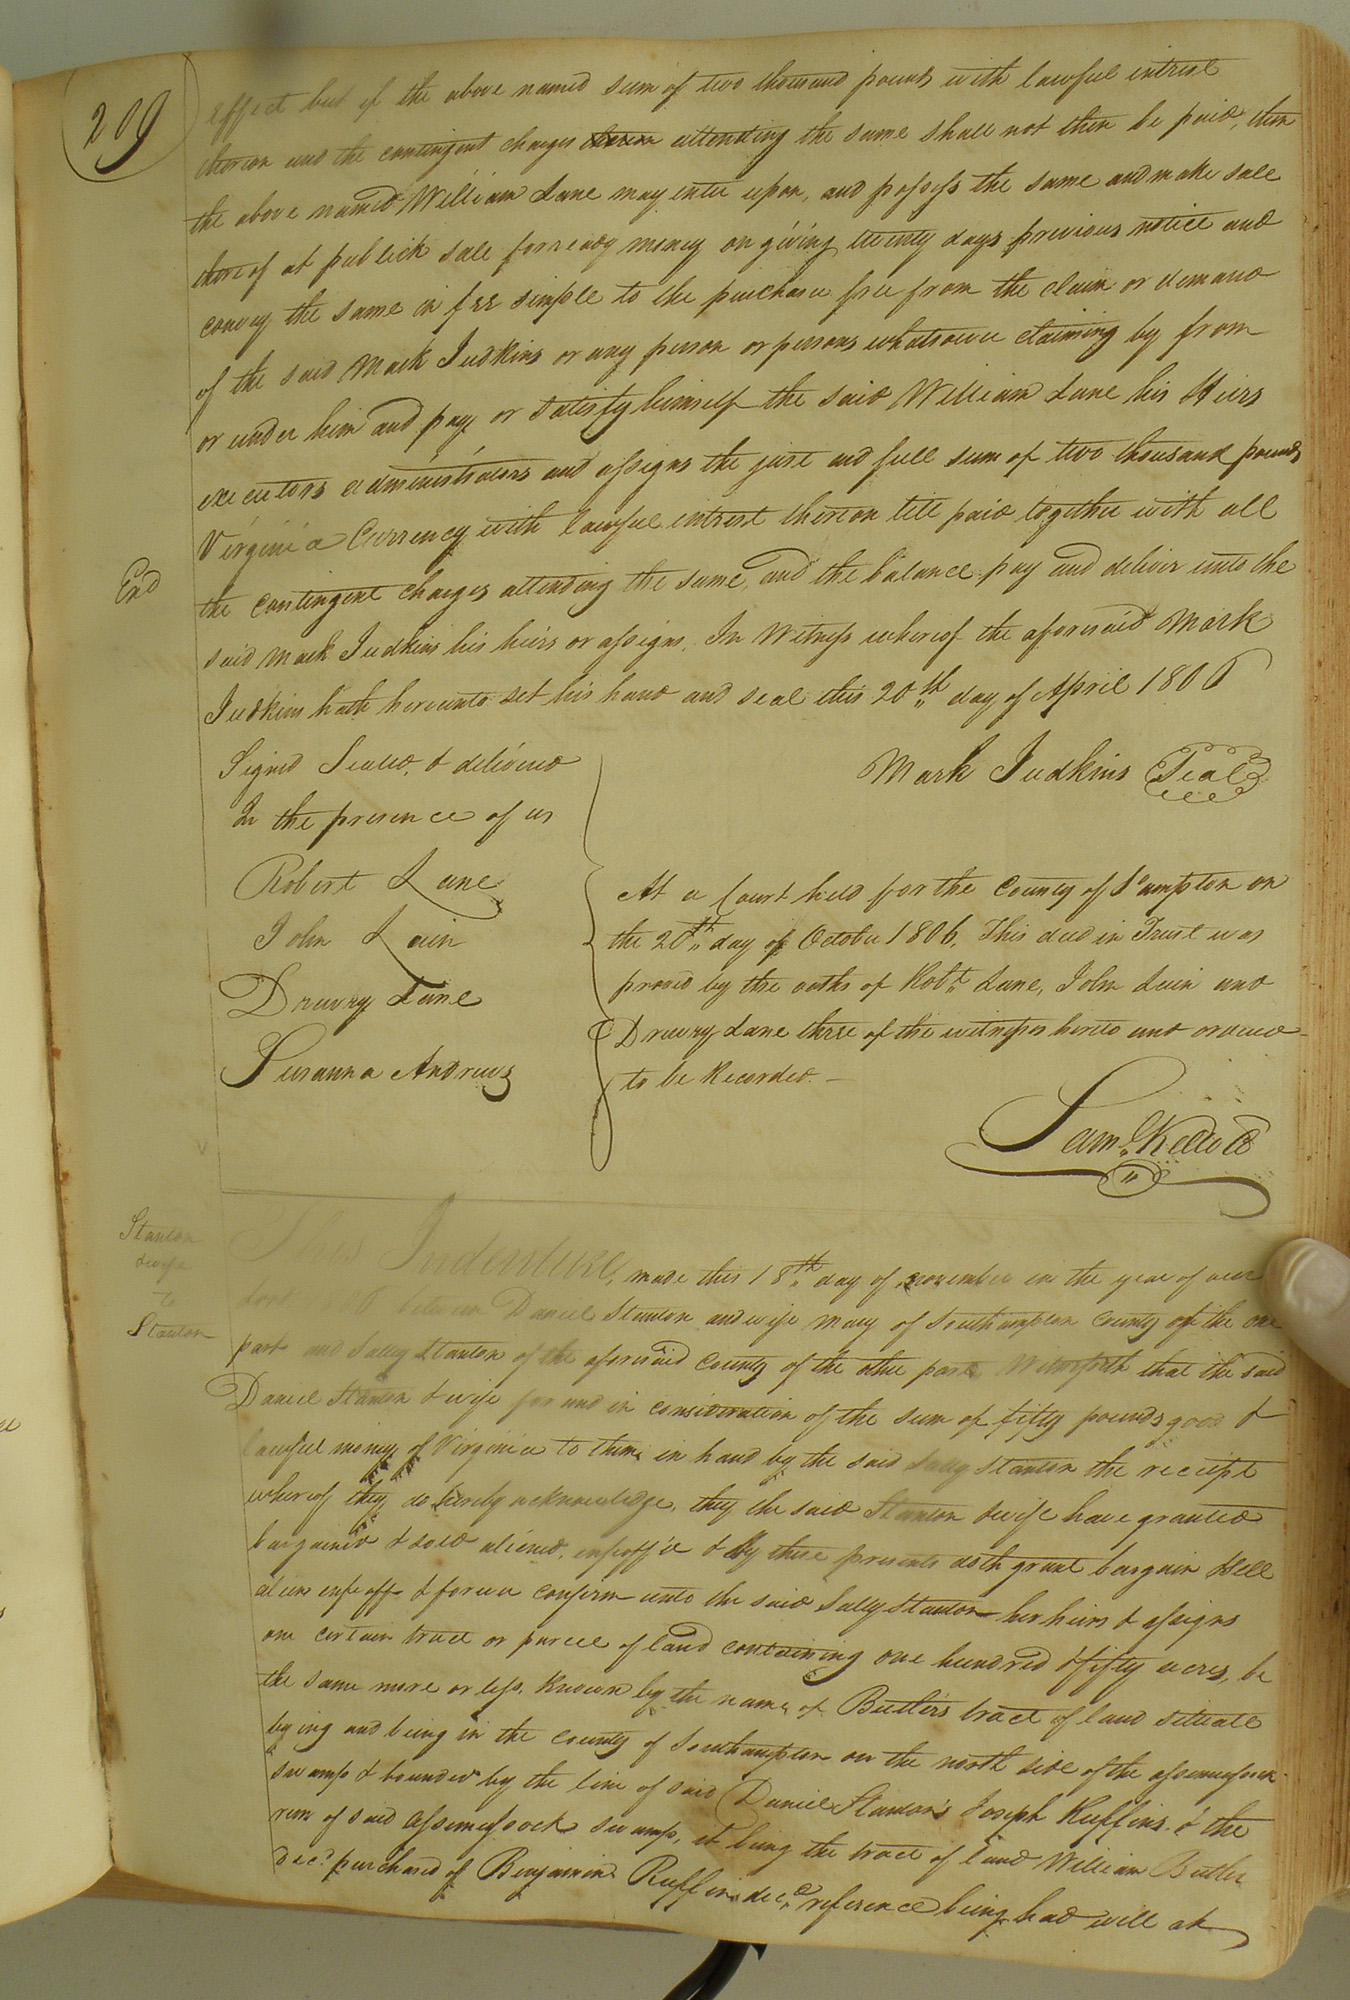 209
effect but if the above named sum of two thousand pounds with lawful intrest
thereon and the contingent charges attending the same shall not then be paid, then
the above named William Lane may enter upon, and possess the same and make sale
thereof at publick sale for ready money on giving twenty days previous notice and
convey the same in fee simple to the purchaser free from the claim or demand
of the said Mark Judkins or any person or persons whatsoever claiming by from
or under him and pay or satisfy himself the said William Lane his Heirs
executors administrators and assigns the just and full sum of two thousand pounds
Virginia Currency with lawful intrest thereon till paid together with all
Exd
the contingent charges attending the same, and the balance pay and deliver unto the
said Mark Judkins his heirs or assigns. In Witness whereof the aforesaid Mark
Judkins hath hereunto set his hand and seal this 20th day of April 1806
Signd Sealed, & delivered
In the presence of us
Mark Judkins Seal
Robert Lane
John Lain
Drewry Lane
Susanna Andrews
At a Court held for the County of S'ampton on
the 20th day of October 1806, This deed in Trust was
proved by the oaths of Robt Lane, John Lain and
Drewry Lane three of the witnesses hereto and ordered
to be Recorded. —
Saml Kello C
Stanton
& wife
to
Stanton
This Indenture, made this 18th day of november in the year of our
Lord between Daniel Stanton and wife Mary of Southampton County of the one
part and Sally Stanton of the aforesaid County of the other part Witnesseth that the said
Daniel Stanton & wife for and in consideration of the sum of fifty pounds good &
lawful money of Virginia to them in hand by the said Sally Stanton the receipt
whereof they do hereby acknowledge, they the said Stanton & wife have granted
bargained & sold aliened, enfeoff'd & by these presents doth grant bargain & sell
alien enfeoff & forever confirm unto the said Sally Stanton her heirs & assigns
one certain tract or parcel of land containing one hundred & fifty acres, be
the same more or less, known by the name of Butlers tract of land situate
lying and being in the county of Southampton on the north side of the assamusock
swamp & bounded by the line of said Daniel Stanton's Joseph Ruffins & the
run of said Assamusock swamp, it being the tract of land William Butler
Decd purchased of Benjamin Ruffin decd reference being had will at